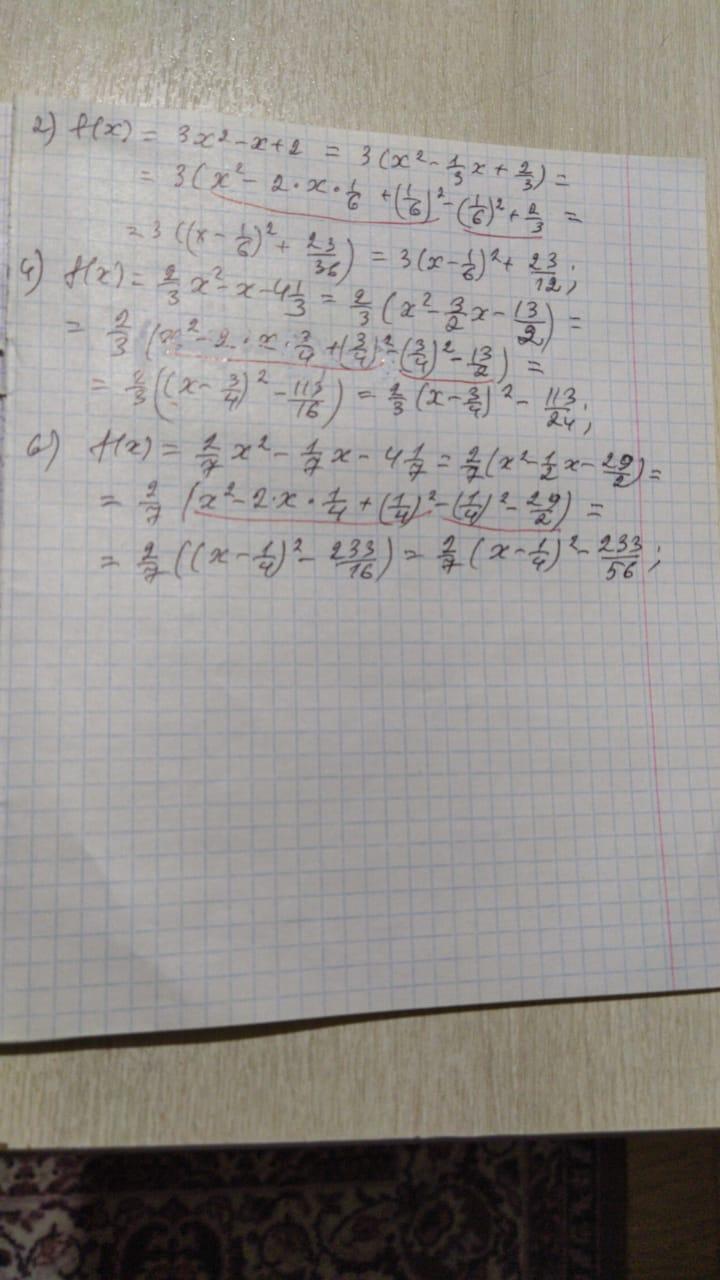 2) f(x) = 3x² - x + 2 = 3(x² - 1/3 x + 2/3) =
= 3(x² - 2·x·1/6 + (1/6)² - (1/6)² + 2/3 =
= 3((x - 1/6)² + 23/36) = 3(x - 1/6)² + 23/12;
4) f(x) = 2/3 x² - x - 4 1/3 = 2/3 (x² - 3/2 x - 13/2) =
= 2/3 (x² - 2·x·3/4 + (3/4)² - (3/4)² - 13/2) =
= 2/3 ((x - 3/4)² - 113/16) = 2/3 (x - 3/4)² - 113/24;
6) f(x) = 2/7 x² - 1/7 x - 4 1/7 = 2/7 (x² - 1/2 x - 29/2) =
= 2/7 (x² - 2·x·1/4 + (1/4)² - (1/4)² - 29/2) =
= 2/7 ((x - 1/4)² - 233/16) = 2/7 (x - 1/4)² - 233/56;